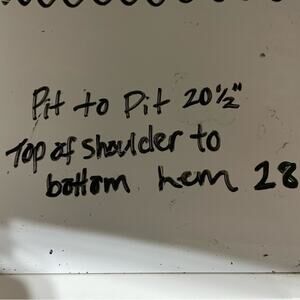 Pit to Pit 20½"
Top of shoulder to
bottom hem 28